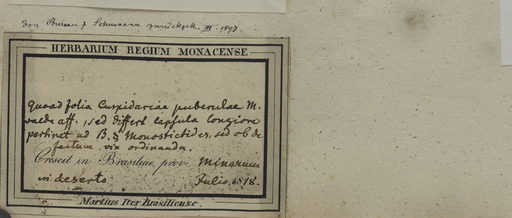 von Bureau & Schumann zurückgek. III. 1897.
HERBARIUM REGIUM MONACENSE
quoad folia Cuspidariae puberulae M.
valde aff., sed differt capsula longiore
pertinet ad B. § Monostictides, sed ob de
fectum vix ordinanda.
Crescit in Brasiliae prov. Minarum
in deserto Julio, 1818.
Martius Iter Brasiliense.